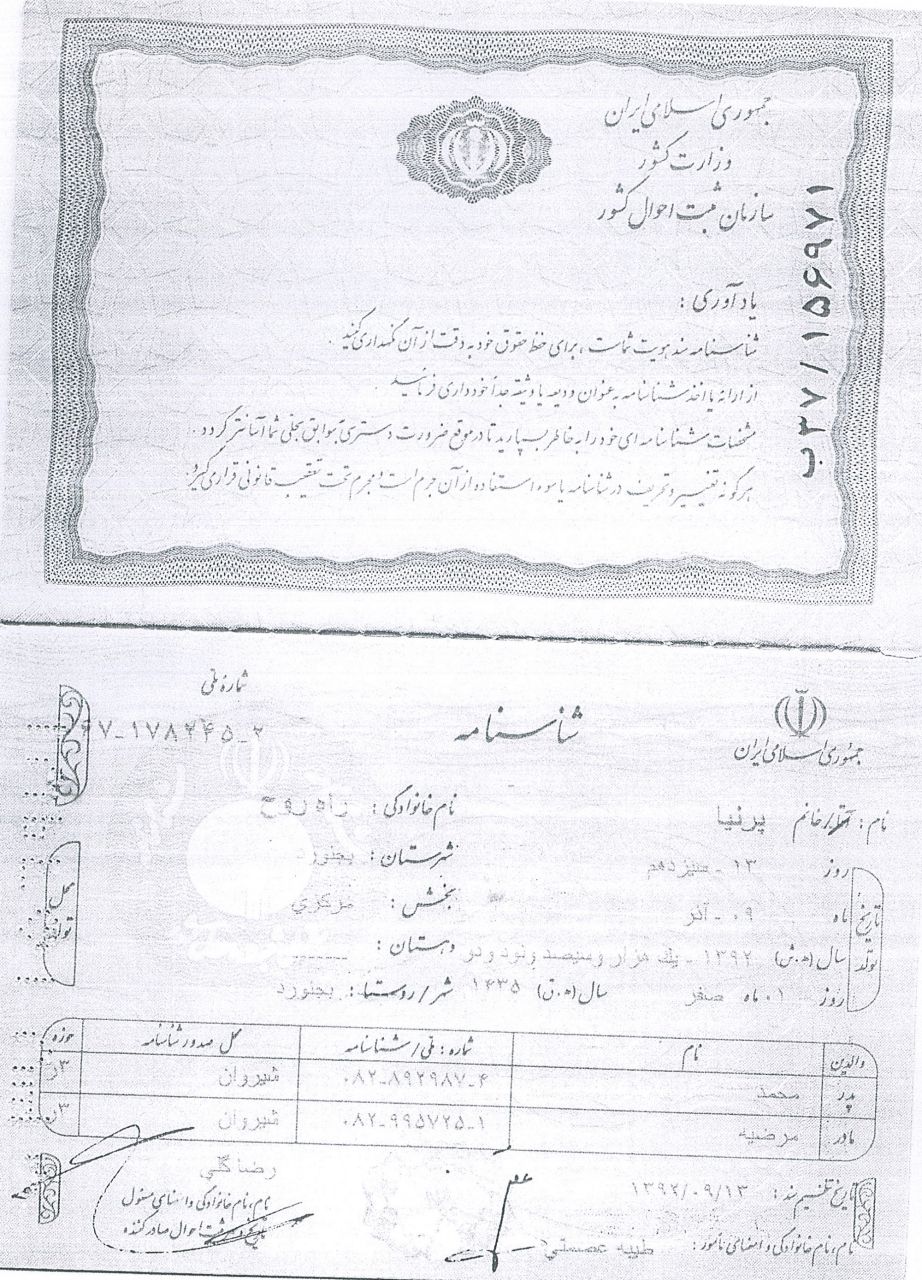 جمهوری اسلامی ایران
وزارت کشور
سازمان ثبت احوال کشور
ب۳۷/۱۵۶۹۷۱
یادآوری :
شناسنامه سند هویت شماست ، برای حفظ حقوق خود به دقت از آن نگهداری کنید .
از ارائه یا اخذ شناسنامه به عنوان ودیعه یا وثیقه جداً خودداری فرمائید
مشخصات شناسنامه ای خود را به خاطر بسپارید تا در موقع ضرورت دسترسی به سوابق سجلی شما آسانتر گردد .
هرگونه تغییر و تحریف در شناسنامه یا سوء استفاده از آن جرم است و مجرم تحت تعقیب قانونی قرار می گیرد
جمهوری اسلامی ایران
شناسنامه
شمارهٔ ملی
۶۷-۱۷۸۲۴۵-۲
نام : آقا/خانم پرنیا نام خانوادگی : راه روح
تاریخ تولد
روز ۱۳ - سیزدهم
ماه ۰۹ - آذر
سال (ه.ش) ۱۳۹۲ - یک هزار و سیصد و نود و دو
روز ۱۰ ماه صفر سال (ه.ق) ۱۴۳۵
محل تولد
شهرستان : بجنورد
بخش : مرکزی
دهستان : ------
شهر / روستا : بجنورد
والدین نام شماره : ملی / شناسنامه محل صدور شناسنامه حوزه
پدر محمد ۰۸۲-۸۹۲۹۸۷-۴ شیروان ۳ر
مادر مرضیه ۰۸۲-۹۹۵۷۲۵-۱ شیروان ۳ر
تاریخ تنظیم سند : ۱۳۹۲/۰۹/۱۳
نام ، نام خانوادگی و امضای مأمور : طیبه عصمتی
رضا گلی
نام ، نام خانوادگی و امضای مسئول
ثبت احوال صادر کننده